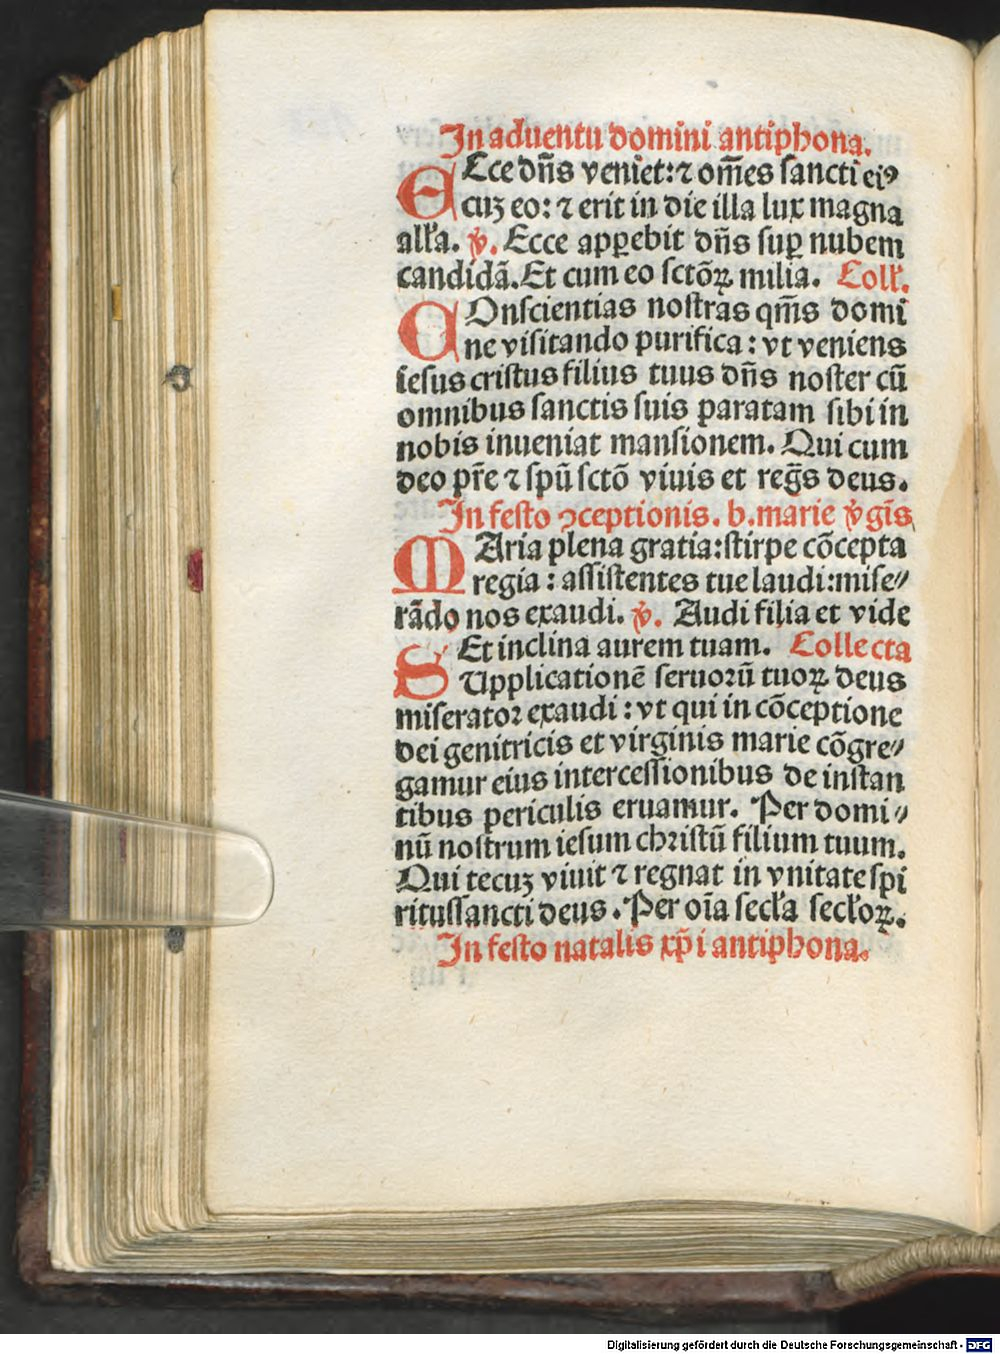 In aduentu domini antiphona.
ECce dn̄s veniet: ⁊ om̄es sancti eiꝰ
cuꝫ eo: ⁊ erit in die illa lux magna
alľa. ꝟ. Ecce apꝑebit dn̄s suꝑ nubem
candidā. Et cum eo sctōꝝ milia. Coll'.
COnscientias nostras qm̄s domi
ne visitando purifica: vt veniens
iesus cristus filius tuus dn̄s noster cū
omnibus sanctis suis paratam sibi in
nobis inueniat mansionem. Qui cum
deo pr̄e ⁊ spū sctō viuis et reḡs deus.
In festo ↄceptionis. b. marie ꝟgīs
MAria plena gratia: stirpe cōcepta
regia: assistentes tue laudi: mise⸗
rādo nos exaudi. ꝟ. Audi filia et vide
Et inclina aurem tuam. Collecta
SUpplicationē seruorū tuoꝝ deus
miserator exaudi: vt qui in cōceptione
dei genitricis et virginis marie cōgre⸗
gamur eius intercessionibus de instan
tibus periculis eruamur. Per domi⸗
nū nostrum iesum christū filium tuum.
Qui tecuꝫ viuit ⁊ regnat in vnitate spi
ritussancti deus. Per oīa secľa secľoꝝ.
In festo natalis xp̄i antiphona.
Digitalisierung gefördert durch die Deutsche Forschungsgemeinschaft - DFG